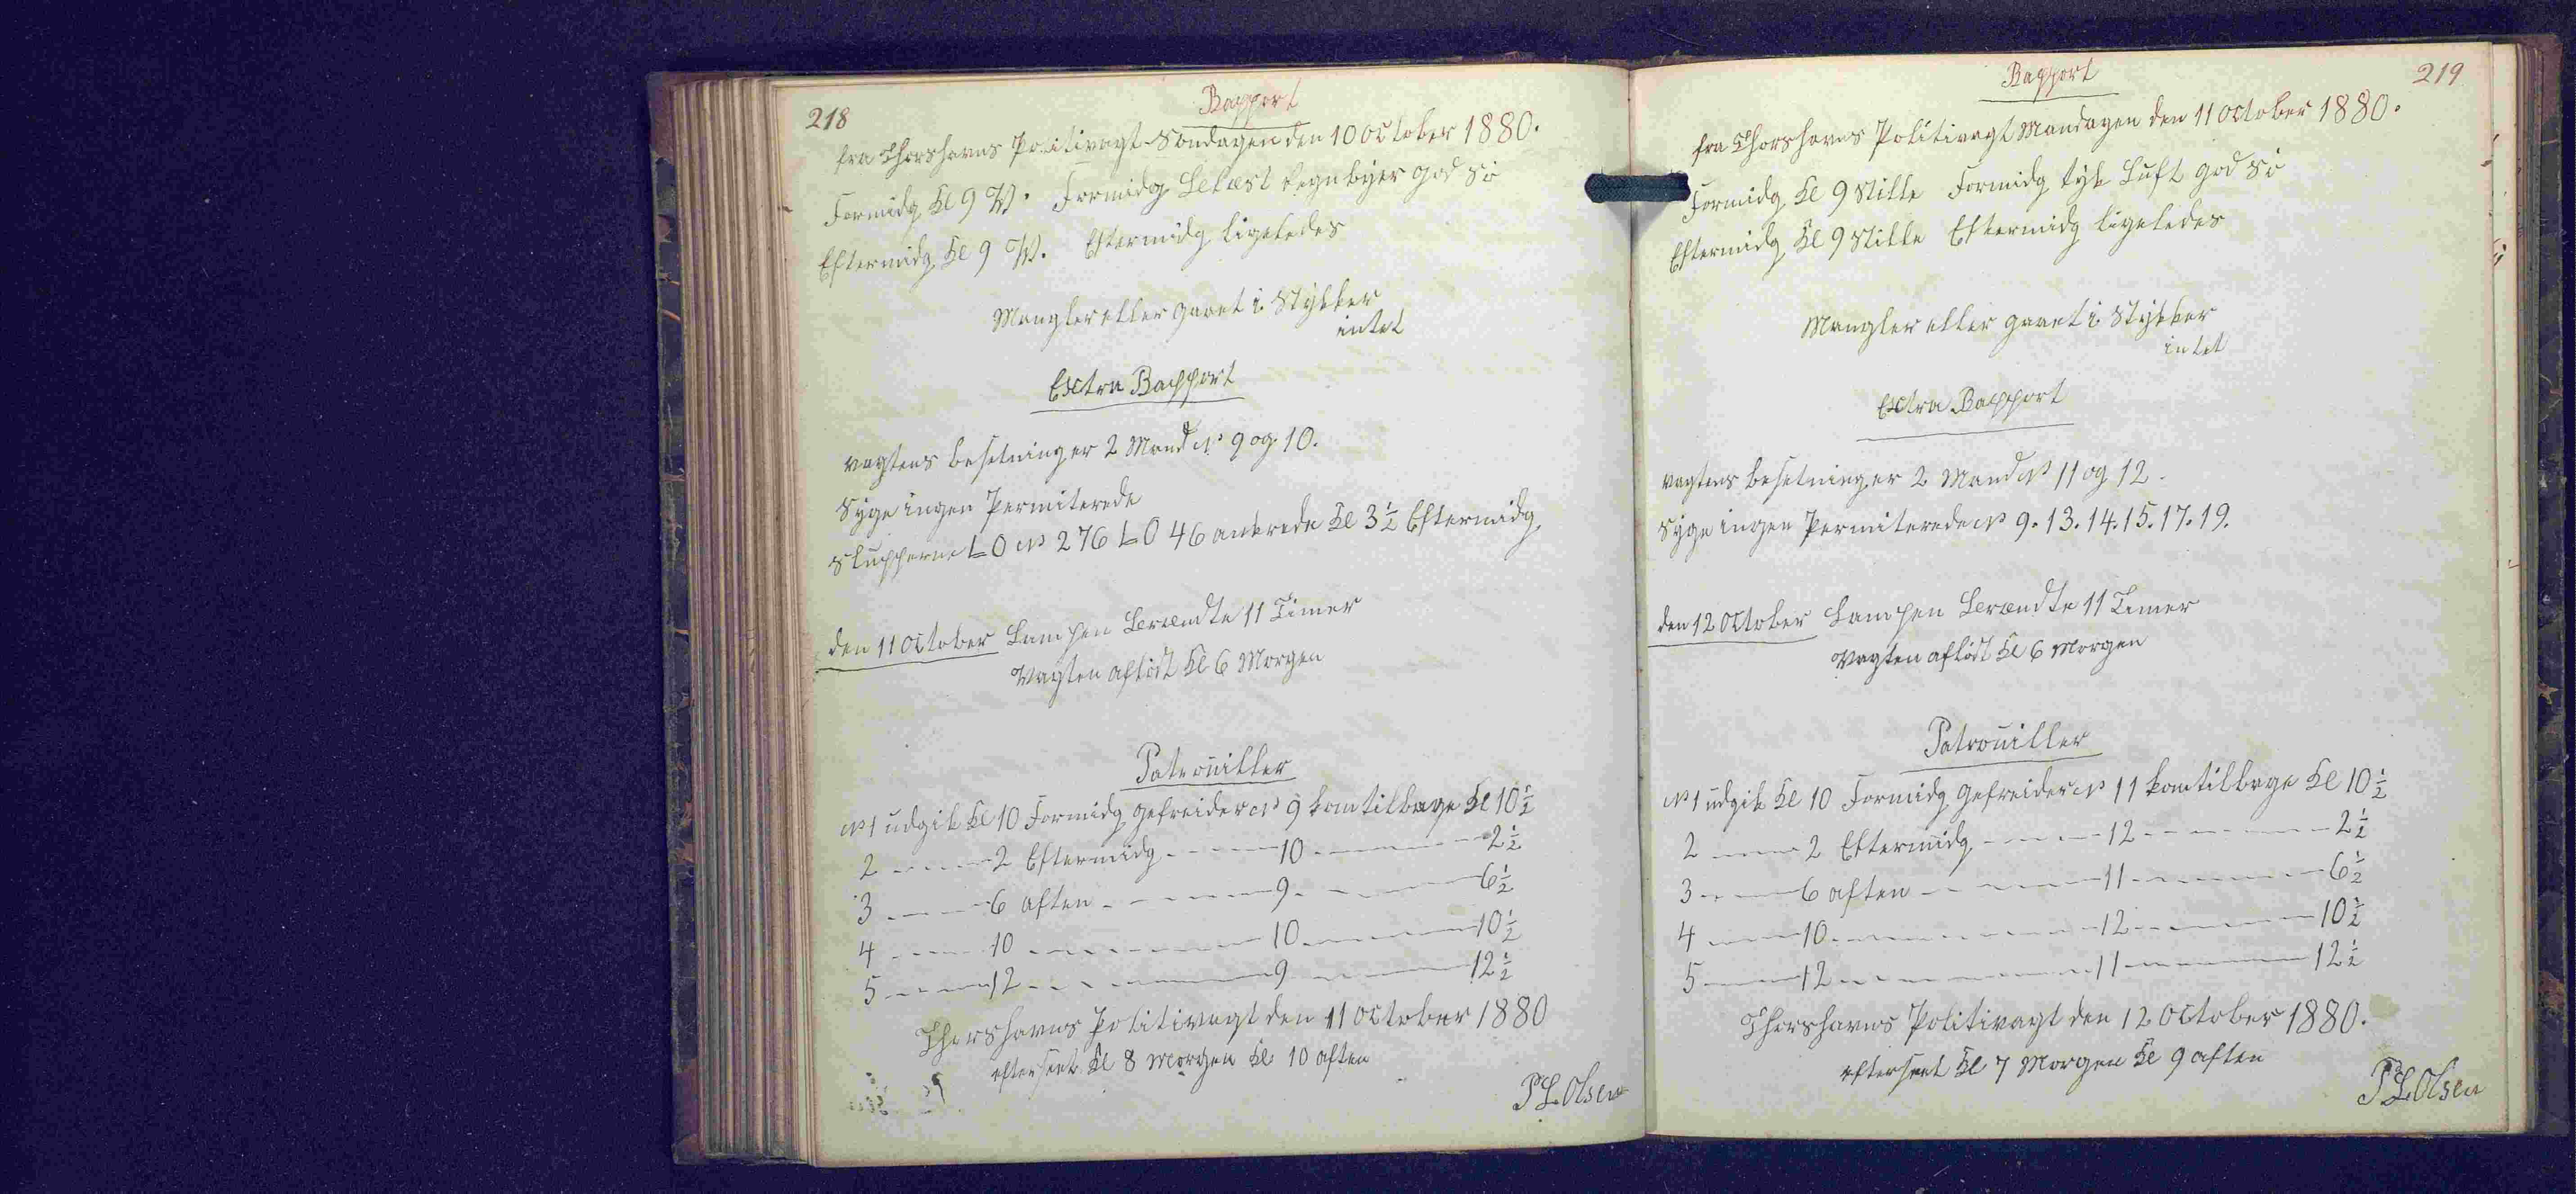 218
Rapport
fra Thorshavns Politivagt Søndagen den 10 October 1880.
Formidg Kl 9 W. Formidg Letæst Regnbyer god Sö
Eftermidg Kl 9 W. Eftermidg ligeledes
Mangler eller gaaet i Stykker
intet
Extra Rapport
vagtens besetning er 2 Mand No 9 og 10.
Syge ingen Permiterede
Slupperne LO No 276 LO 46 ankrede Kl 3 1/2 Eftermidg
den 11 October Lampen Brændte 11 Timer
Vagten aflöst Kl 6 Morgen
Patrouiller
No 1 udgik Kl 10 Formidg gefreider No 9 kom tilbage Kl 10 1/2
2 - - - - 2 Eftermidg - - - - 10 - - - - 2 1/2
3 - - - - 6 aften - - - - 9 - - - - 6 1/2
4 - - - - 10 - - - - 10 - - - - 10 1/2
5 - - - - 12 - - - - 9 - - - - 12 1/2
Thorshavns Politivagt den 11 October 1880
efterseet Kl 8 Morgen Kl 10 aften
P L Olsen
219
Rapport
fra Thorshavns Politivagt Mandagen den 11 October 1880.
Formidg Kl 9 Stille Formidg tyk Luft god Sö
Eftermidg Kl 9 Stille Eftermidg ligeledes
Mangler eller gaaet i Stykker
intet
Extra Rapport
vagtens besetning er 2 Mand No 11 og 12.
Syge ingen Permiterede No 9. 13. 14. 15. 17. 19.
den 12 October Lampen Brændte 11 Timer
Vagten aflöst Kl 6 Morgen
Patrouiller
No 1 udgik Kl 10 Formidg gefreider No 11 kom tilbage Kl 10 1/2
2 - - - - 2 Eftermidg - - - - 12 - - - - 2 1/2
3 - - - - 6 aften - - - - 11 - - - - 6 1/2
4 - - - - 10 - - - - 12 - - - - 10 1/2
5 - - - - 12 - - - - 11 - - - - 12 1/2
Thorshavns Politivagt den 12 October 1880.
efterseet Kl 7 Morgen Kl 9 aften
P L Olsen